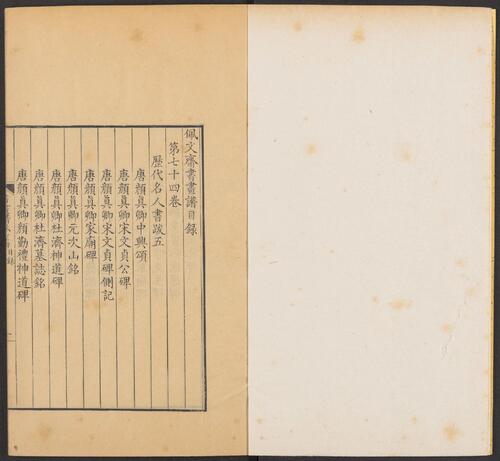 佩文齋書畫譜目錄
第七十四卷
歷代名人書跋五
唐顏真卿中興頌
唐顏真卿宋文貞公碑
唐顏真卿宋文貞碑側記
唐顏真卿家廟碑
唐顏真卿元次山銘
唐顏真卿杜濟神道碑
唐顏真卿杜濟墓誌銘
唐顏真卿顏勤禮神道碑